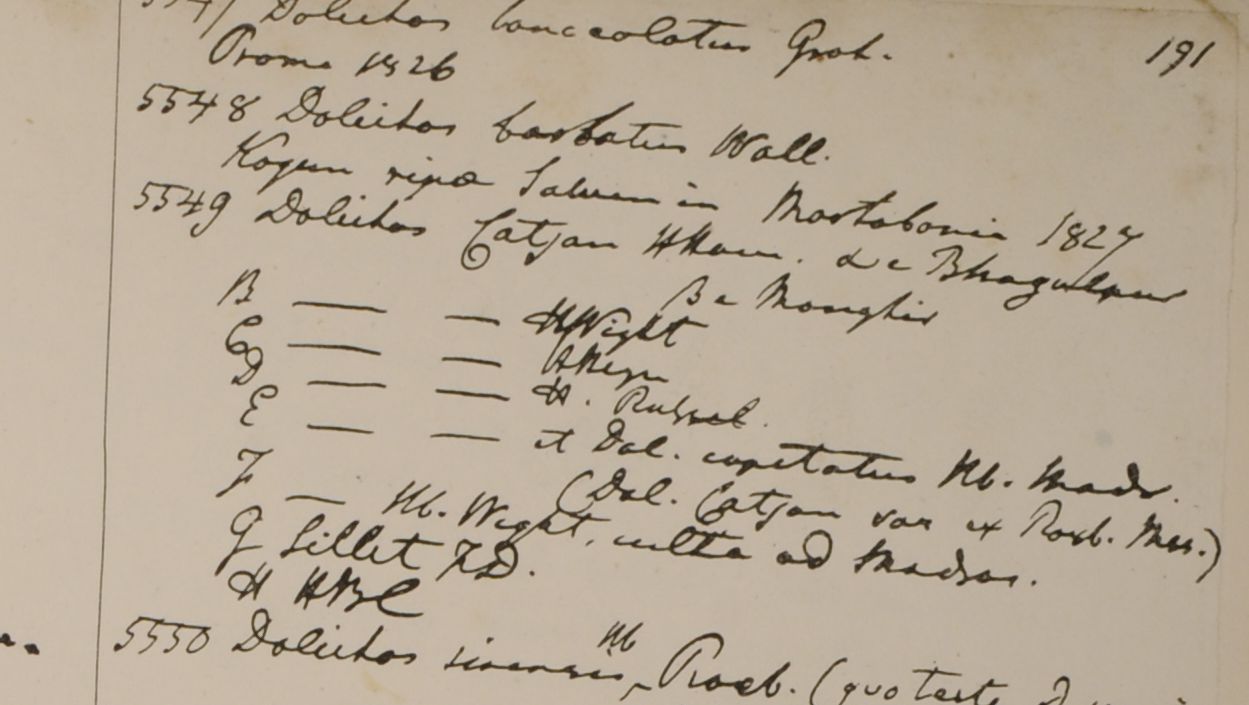 5547 Dolichos lanceolatus Grah.
191
Prome 1826
5548 Dolichos barbatus Wall.
Kogun ripa Saluen in Martabania 1827
5549 Dolichos Catjan HHam. a e Bhagulpur
B e Monghir
B — — HWight
C — — HHeyn
D — — H. Russel.
E — — et Dol. capitatus Hb. Madr.
(Dol. Catjan var ex Roxb. Mss.)
F — Hb. Wight, culta ad Madras.
G Sillet F.D.
H HBC
5550 Dolichos sinensis Hb Roxb. (quo teste